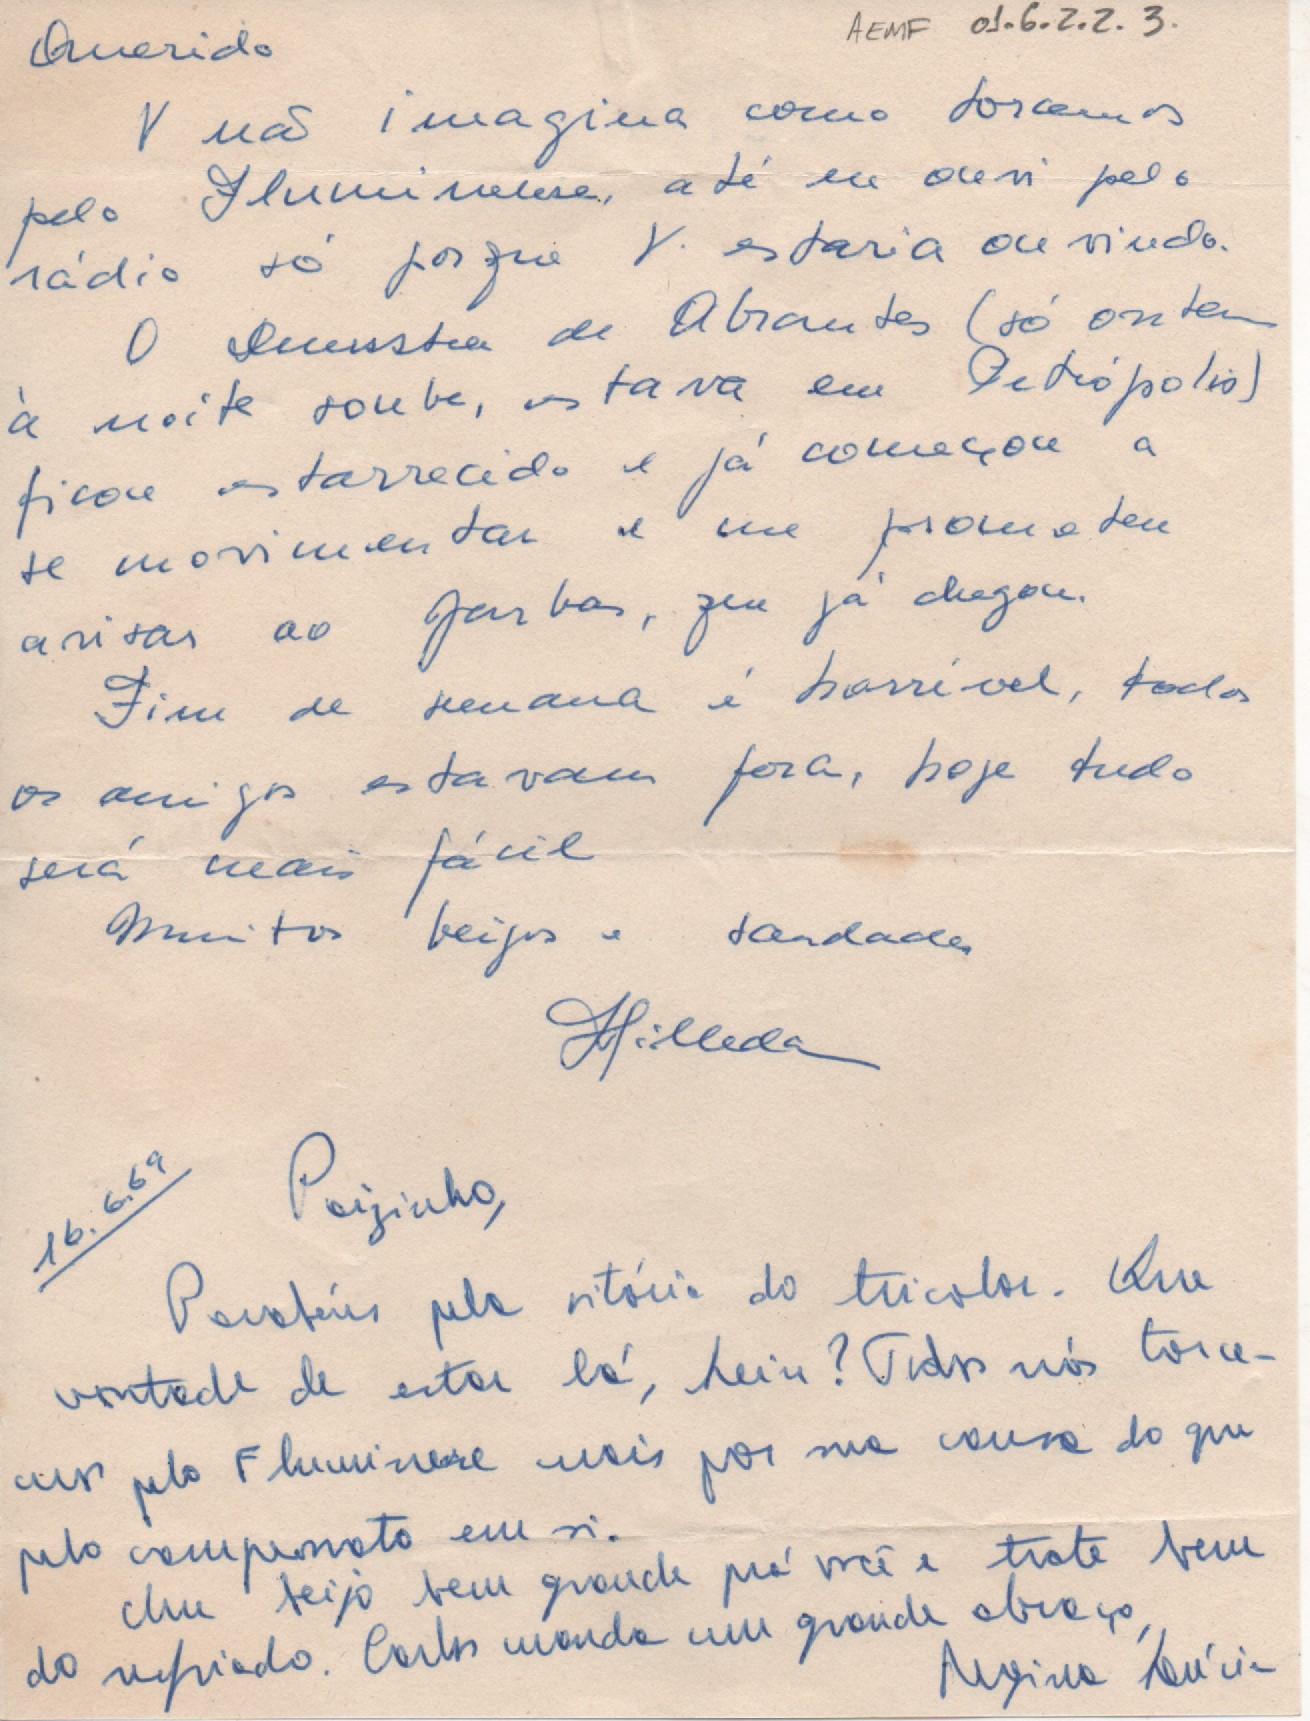 AEMF 01.6.2.2.3.
Querido
V não imagina como torcemos
pelo Fluminense, até eu ouvi pelo
rádio só porque V. estaria ouvindo.
O de Abrantes (só ontem
à noite soube, estava em Petrópolis)
ficou estarrecido e já começou a
se movimentar e me prometeu
avisar ao Jarbas, que já chegou.
Fim de semana é horrível, todos
os amigos estavam fora, hoje tudo
será mais fácil
Muitos beijos e saudades
Hilleda
16.6.69
Paizinho,
Parabéns pela vitória do tricolor. Que
vontade de estar lá, hein? Todos nós torce-
mos pelo Fluminense mais por sua causa do que
pelo campeonato em si.
Um beijo bem grande prá você e trate bem
do resfriado. Carlos manda um grande abraço,
Regina Lúcia